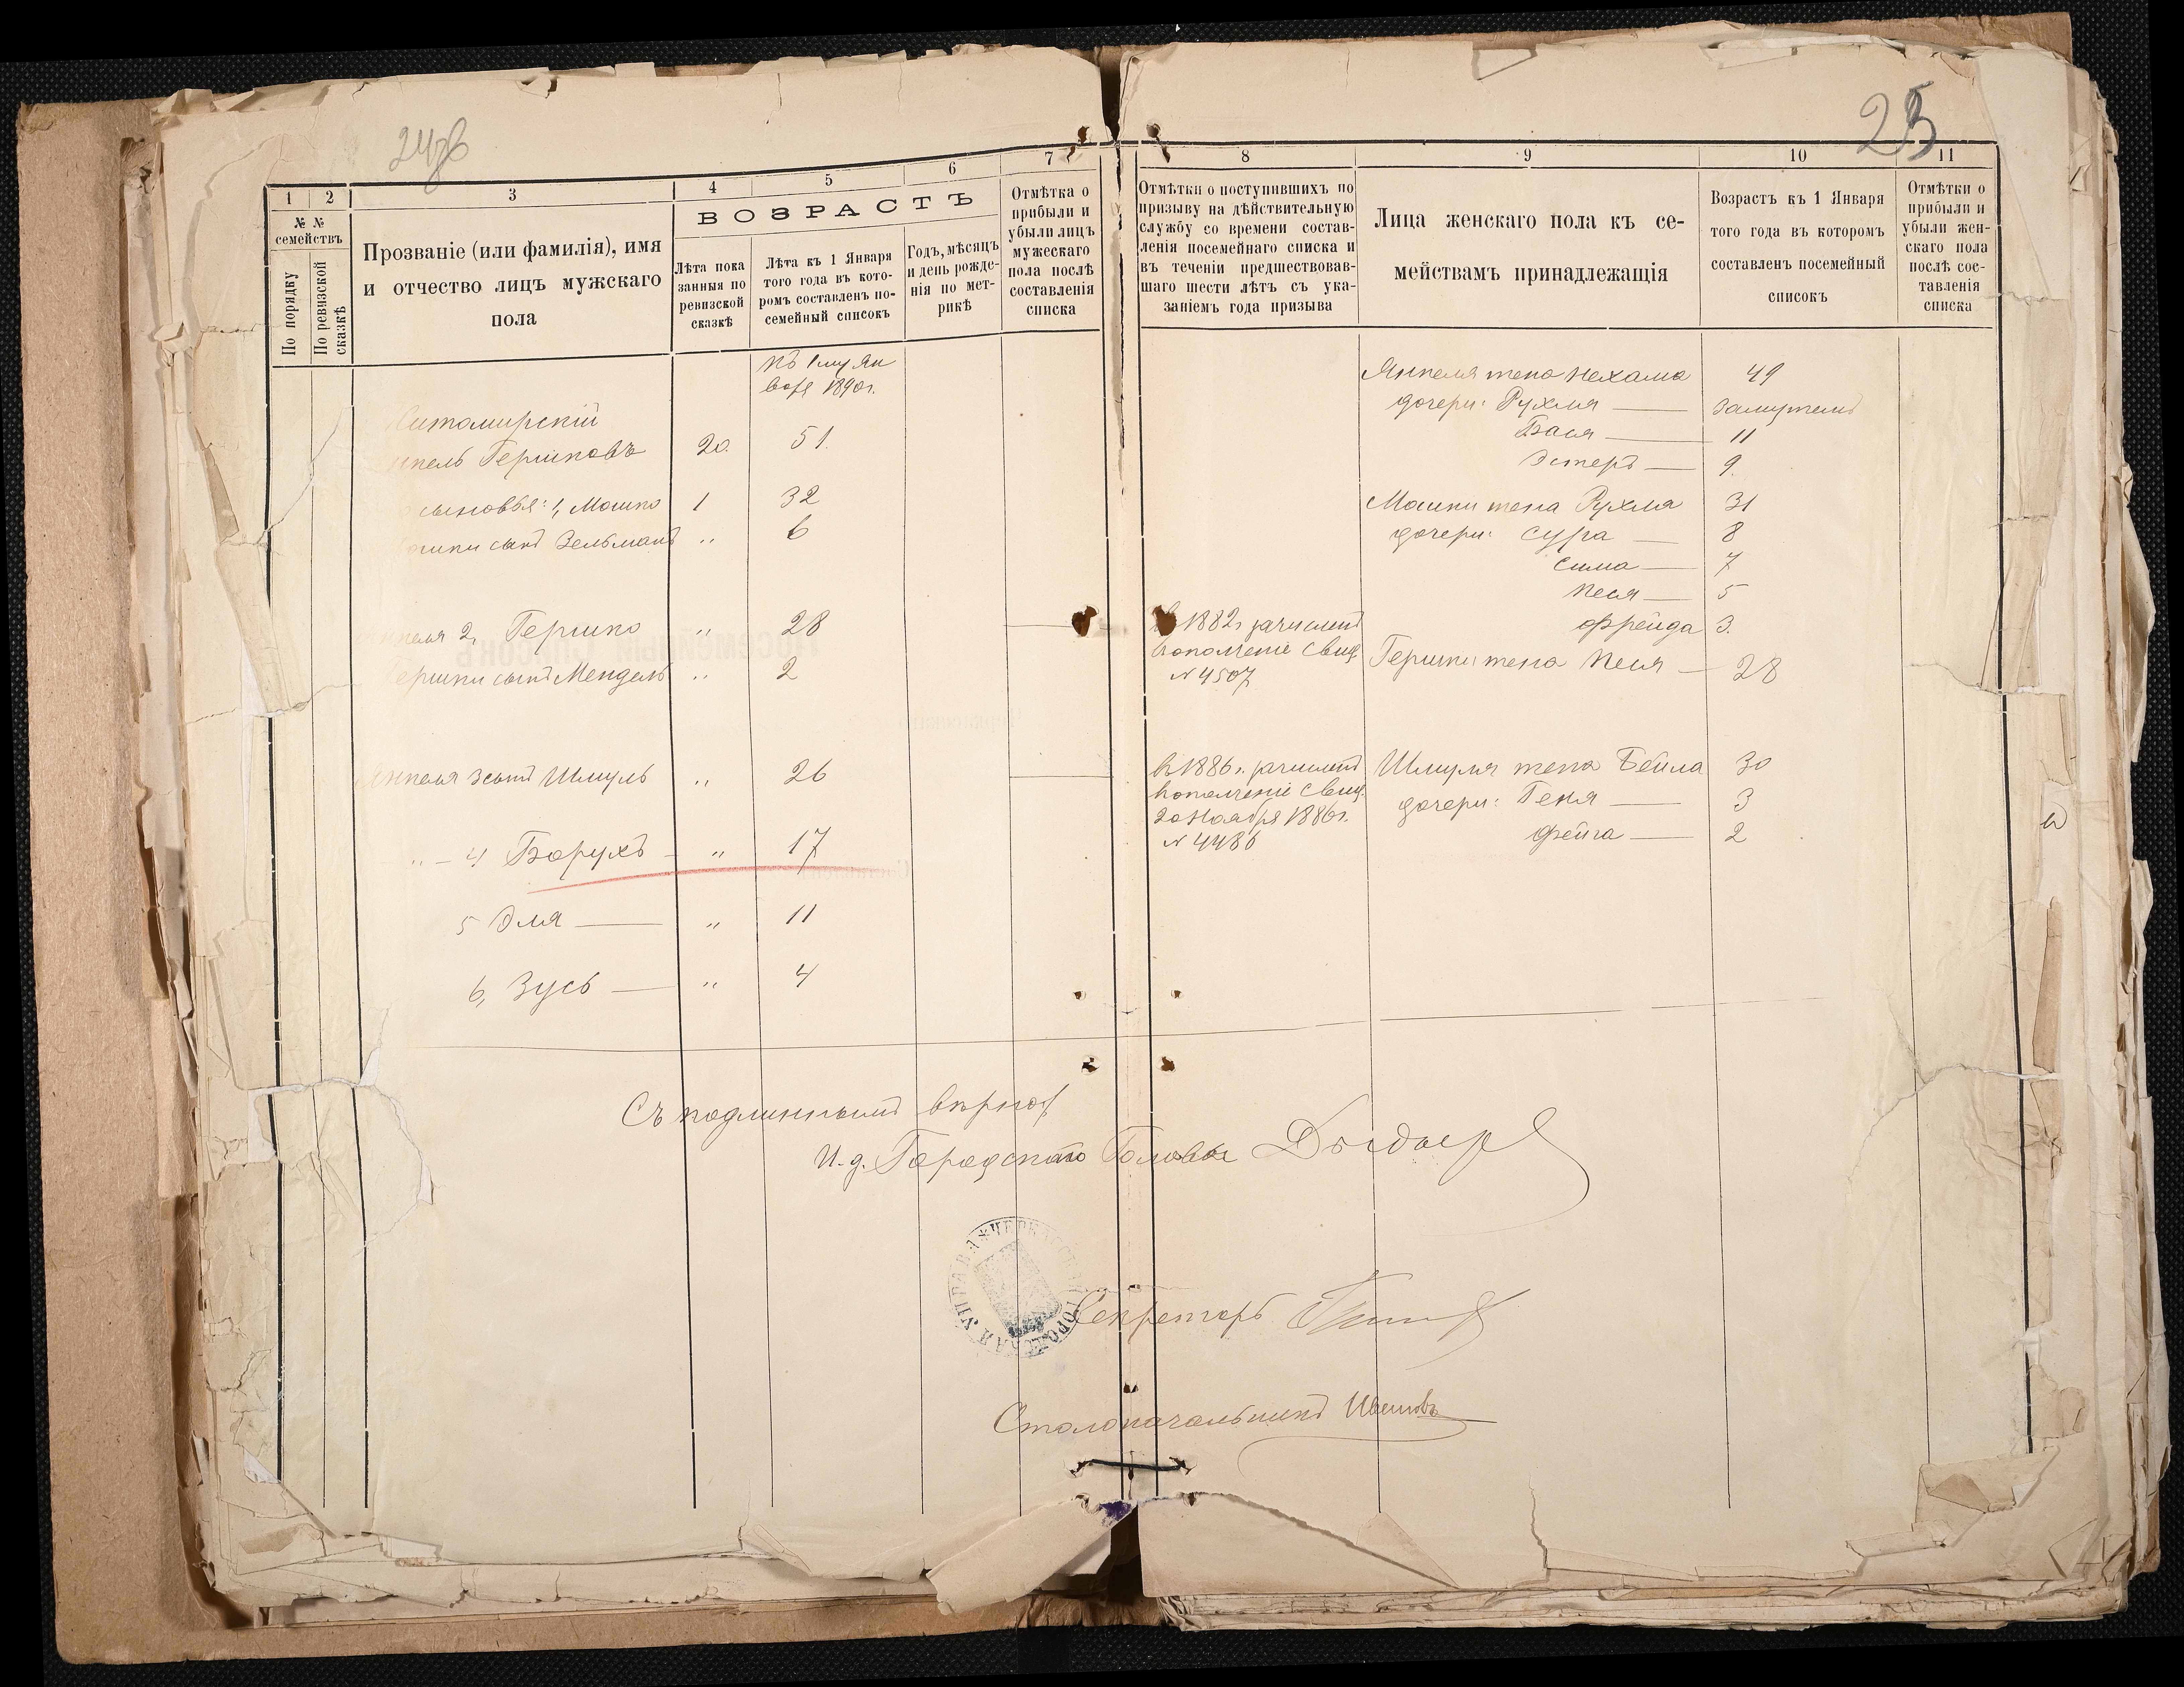 24об
25
1 2 3 4 5 6 7
№ № семействъ
По порядку
По ревизской сказкѣ
Прозваніе (или фамилія), имя
и отчество лицъ мужскаго
пола
ВОЗРАСТЪ
Лѣта пока
занныя по
ревизской
сказкѣ
Лѣта къ 1 Января
того года въ кото-
ромъ составленъ по-
семейный списокъ
Годъ, мѣсяцъ
и день рожде-
нія по мет-
рикѣ
Отмѣтка о
прибыли и
убыли лицъ
мужескаго
пола послѣ
составленія
списка
къ 1му Ян
варя 1890г.
Житомирскій
Янкель Гершковъ 20. 51.
сыновья: 1, Мошко 1 32
Мошки сынъ Зельманъ " 6
Янкеля 2, Гершко " 28
Гершки сынъ Мендель " 2
Янкеля 3 сынъ Шмуль " 26
" – 4 Борухъ – " 17
5 Эля — " 11
6, Зусь — " 4
8 9 10 11
Отмѣтки о поступившихъ по
призыву на дѣйствительную
службу со времени состав-
ленія посемейнаго списка и
въ теченіи предшествовав-
шаго шести лѣтъ съ ука-
заніемъ года призыва
Лица женскаго пола къ се-
мействамъ принадлежащія
Возрастъ къ 1 Января
того года въ которомъ
составленъ посемейный
списокъ
Отмѣтки о
прибыли и
убыли жен-
скаго пола
послѣ сос-
тавленія
списка
Янкеля жена Нехама 49
дочери: Рухля — замужемъ
Бася — 11
Эстеръ — 9.
Мошки жена Рухля 31
дочери: Сура — 8
Сима — 7
Песя — 5
Фрейда 3.
въ 1882г зачисленъ
в ополченіе свид.
№ 4507
Гершки жена Песя — 28
в 1886 г. зачисленъ
в ополченіе свид.
20 Ноября 1886г.
№ 4486
Шмуля жена Бейла 30
дочери: Геня — 3
Фейга — 2
Съ подлиннымъ вѣрно:
И.д. Городскаго Головы
ЧЕРКАССКАЯ ГОРОДСКАЯ УПРАВА
Секретарь
Столоначальникъ